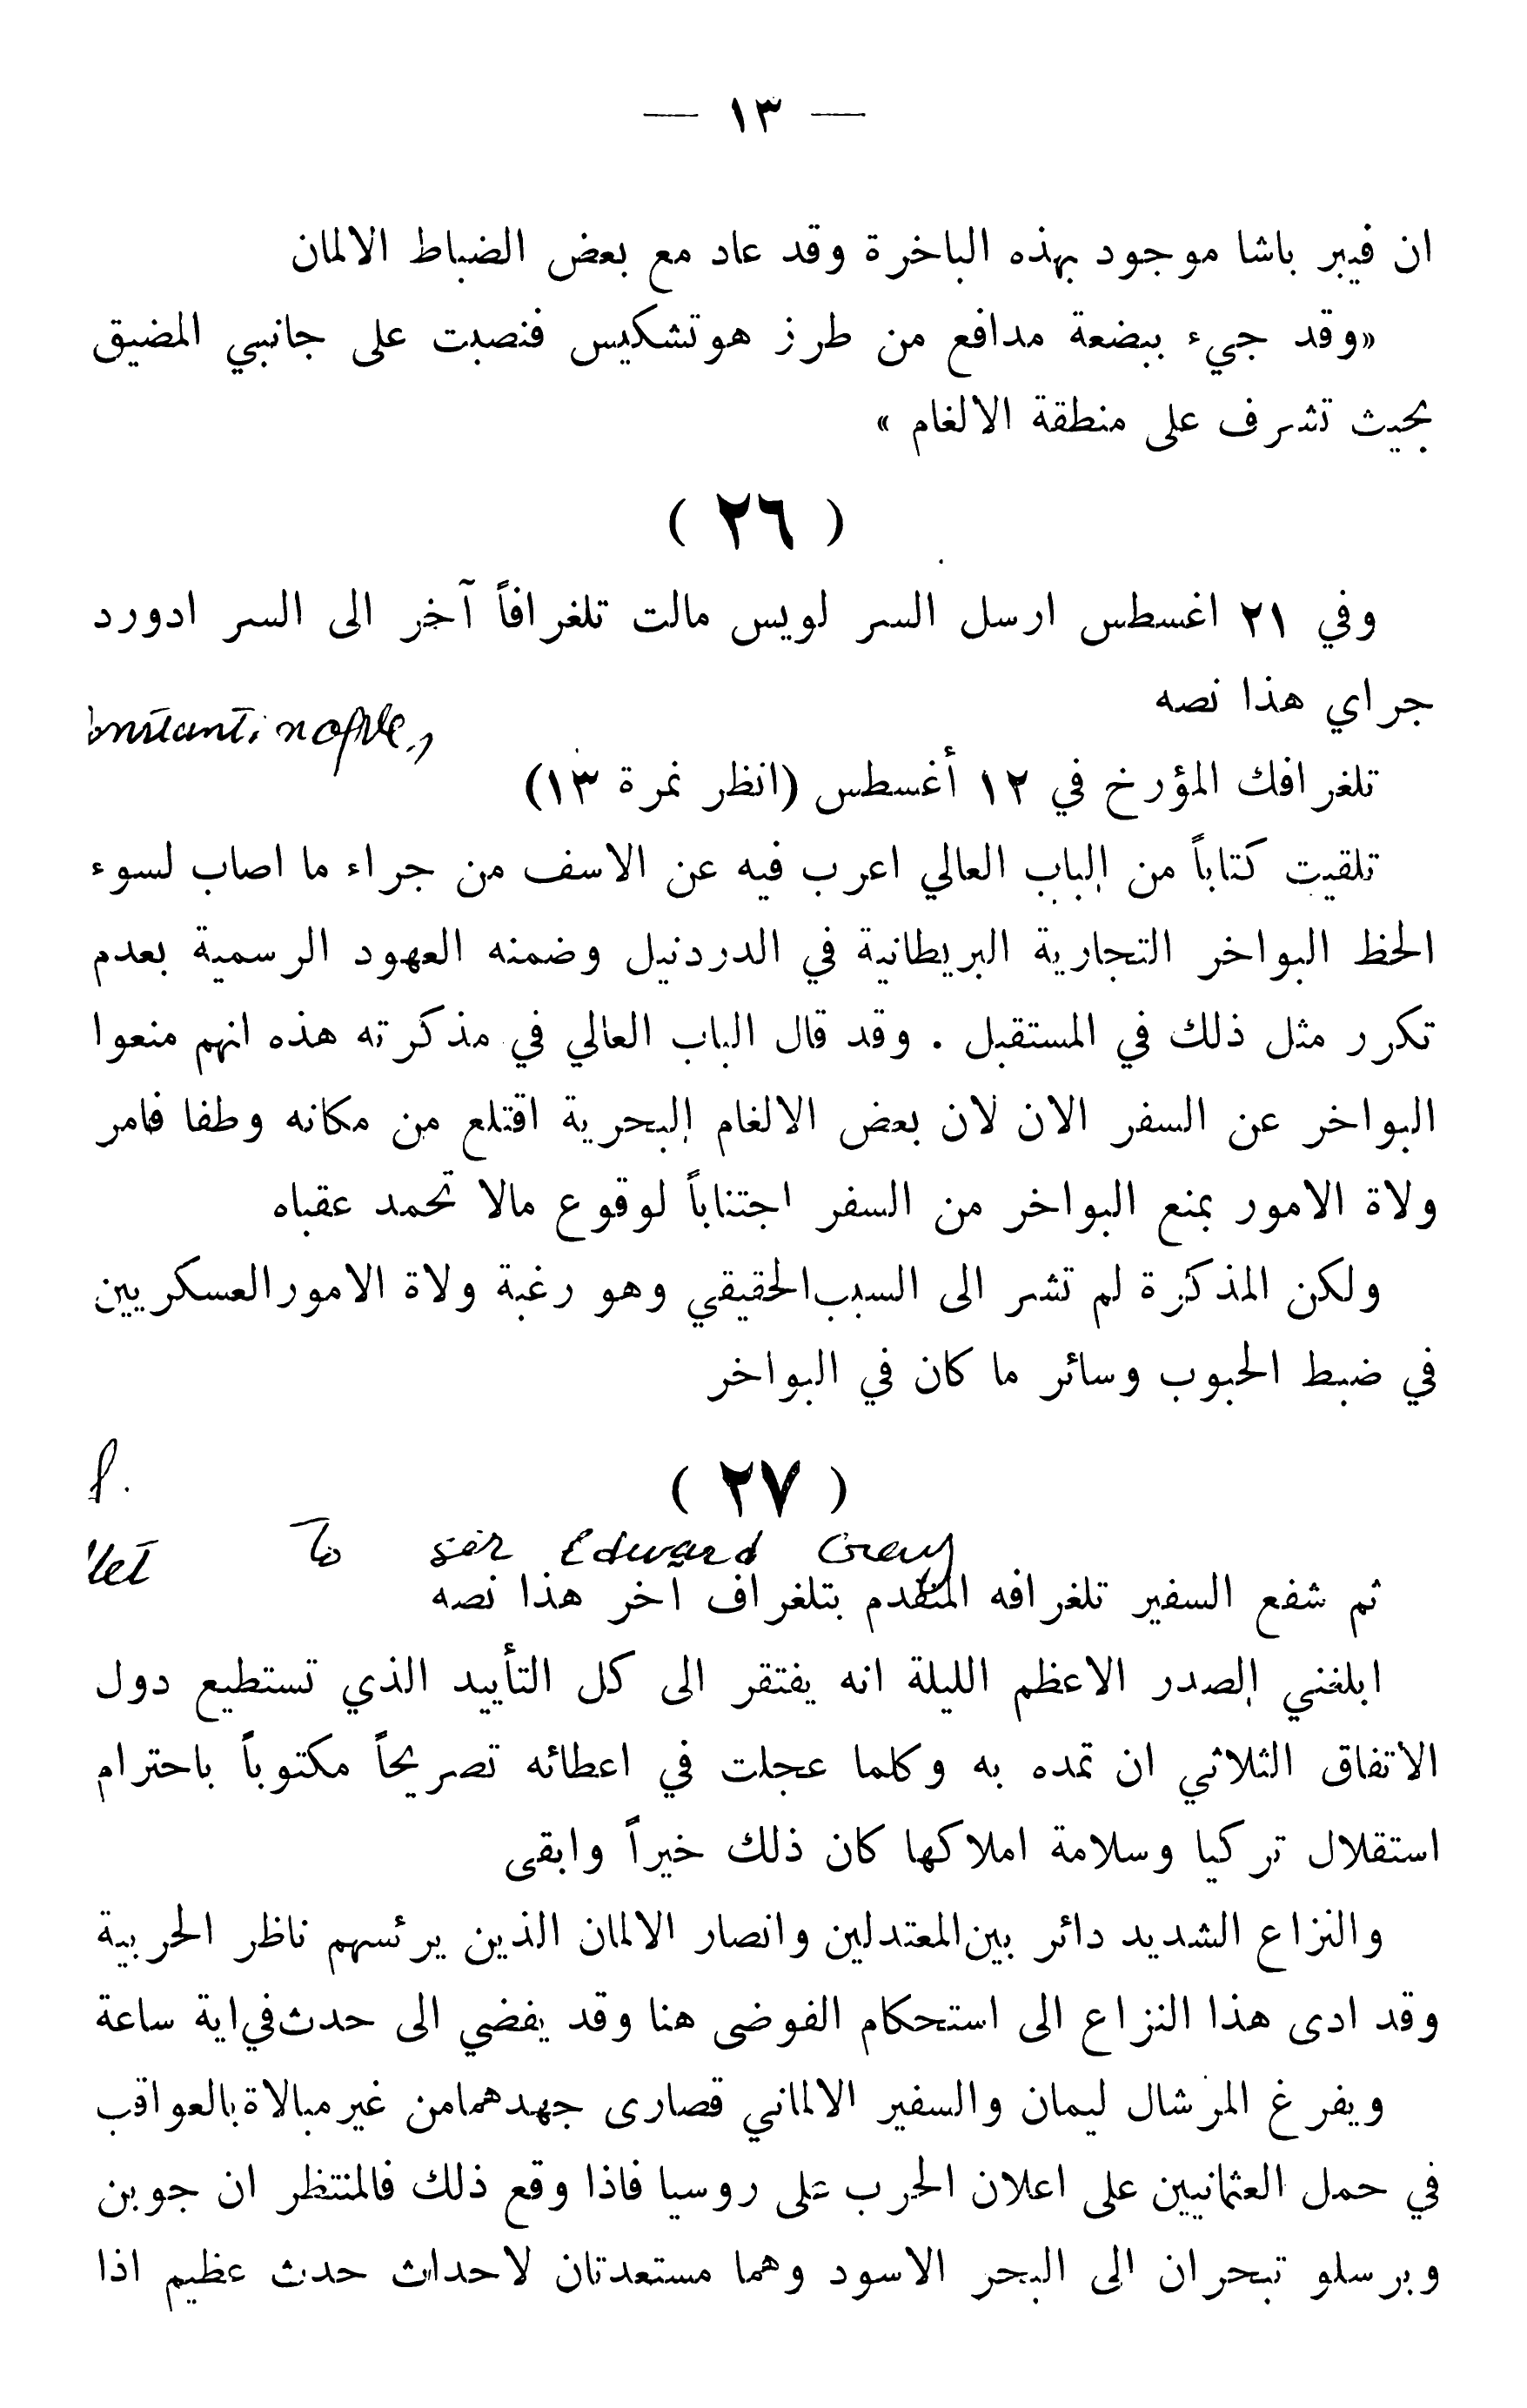 — ١٣ —
ان فيبر باشا موجود بهذه الباخرة وقد عاد مع بعض الضباط الالمان
«وقد جيء ببضعة مدافع من طرز هوتشكيس فنصبت على جانبي المضيق
بحيث تشرف على منطقة الالغام »
( ٢٦ )
وفي ٢١ اغسطس ارسل السر لويس مالت تلغرافاً آخر الى السر ادورد
جراي هذا نصه
تلغرافك المؤرخ في ١٢ أغسطس (انظر نمرة ١٣)
تلقيت كتاباً من الباب العالي اعرب فيه عن الاسف من جراء ما اصاب لسوء
الحظ البواخر التجارية البريطانية في الدردنيل وضمنه العهود الرسمية بعدم
تكرر مثل ذلك في المستقبل . وقد قال الباب العالي في مذكرته هذه انهم منعوا
البواخر عن السفر الان لان بعض الالغام البحرية اقتلع من مكانه وطفا فامر
ولاة الامور بمنع البواخر من السفر اجتناباً لوقوع مالا تحمد عقباه
ولكن المذكرة لم تشر الى السبب الحقيقي وهو رغبة ولاة الامور العسكريين
في ضبط الحبوب وسائر ما كان في البواخر
( ٢٧ )
To Sir Edward Grey
ثم شفع السفير تلغرافه المتقدم بتلغراف آخر هذا نصه
ابلغني الصدر الاعظم الليلة انه يفتقر الى كل التأييد الذي تستطيع دول
الاتفاق الثلاثي ان تمده به وكلما عجلت في اعطائه تصريحاً مكتوباً باحترام
استقلال تركيا وسلامة املاكها كان ذلك خيراً وابقى
والنزاع الشديد دائر بين المعتدلين وانصار الالمان الذين يرئسهم ناظر الحربية
وقد ادى هذا النزاع الى استحكام الفوضى هنا وقد يفضي الى حدث في اية ساعة
ويفرغ المرشال ليمان والسفير الالماني قصارى جهدهما من غير مبالاة بالعواقب
في حمل العثمانيين على اعلان الحرب على روسيا فاذا وقع ذلك فالمنتظر ان جوبن
وبرسلو تبحران الى البحر الاسود وهما مستعدتان لاحداث حدث عظيم اذا